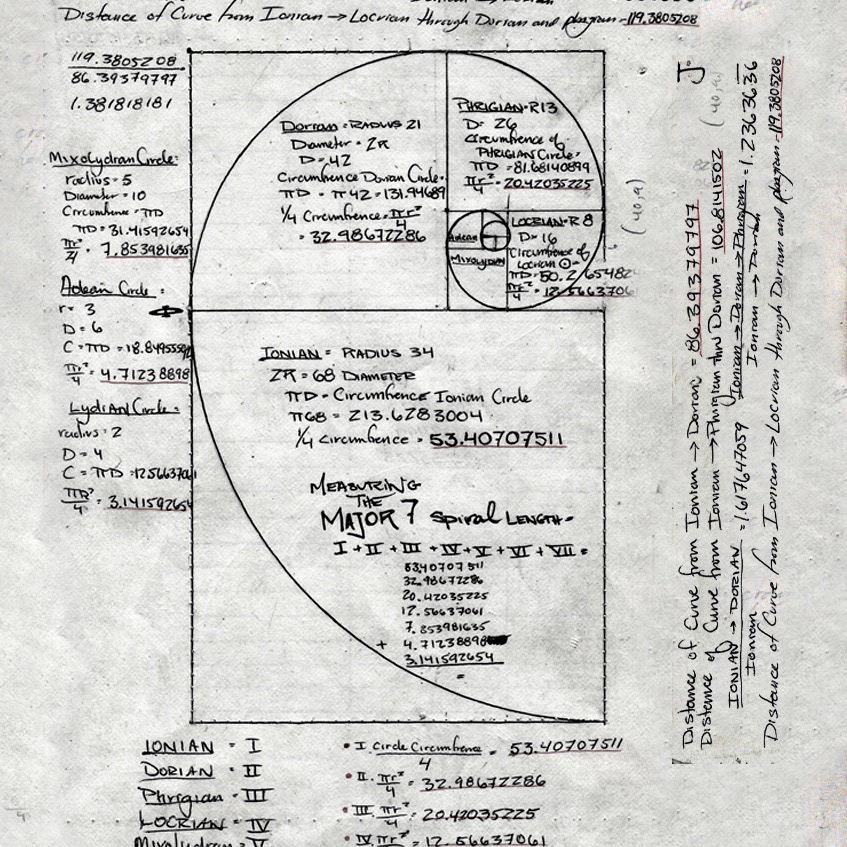 Distance of Curve from Ionian → Locrian through Dorian and phrygian = 119.3805208
119.3805208
86.39379797
1.381818181
Mixolydian Circle:
radius = 5
Diameter = 10
Circumfrence = πD
πD = 31.41592654
πr²/4 = 7.853981635
Aolean Circle:
r = 3
D = 6
C = πD = 18.8495559
πr²/4 = 4.71238898
Lydian Circle:
radius = 2
D = 4
C = πD = 12.5663706
πR²/4 = 3.141592654
Dorian = RADIUS 21
Diameter = 2R
D = 42
Circumfrence Dorian Circle =
πD = π42 = 131.94689
1/4 Circumfrence = πr²/4
= 32.98672286
PHRIGIAN = R13
D = 26
Circumfrence of
PHRIGIAN Circle =
πD = 81.68140899
πr²/4 = 20.42035225
LOCRIAN = R 8
D = 16
Circumfrence of
Locrian ⊙ =
πD = 50.265482
πr²/4 = 12.5663706
Aolean
Mixolydian
IONIAN = RADIUS 34
2R = 68 DIAMETER
πD = Circumfrence Ionian Circle
π68 = 213.6283004
1/4 circumfrence = 53.40707511
MEASURING
THE
MAJOR 7 SPIRAL LENGTH =
I + II + III + IV + V + VI + VII =
53.40707511
32.98672286
20.42035225
12.56637061
7.853981635
+ 4.71238898
3.141592654
=
IONIAN = I
DORIAN = II
Phrigian = III
LOCRIAN = IV
Mixolydian = V
• I. Circle Circumfrence/4 = 53.40707511
• II. πr²/4 = 32.98672286
• III. πr²/4 = 20.42035225
• IV. πr²/4 = 12.56637061
(40,9)
Distance of Curve from Ionian → Dorian = 86.39379797
Distance of Curve from Ionian → Phrigian thru Dorian = 106.8141502
IONIAN → DORIAN/Ionian = 1.617647059
Ionian → Dorian → Phrigian/Ionian → Dorian = 1.2363636
Distance of Curve from Ionian → Locrian through Dorian and phrygian = 119.3805208